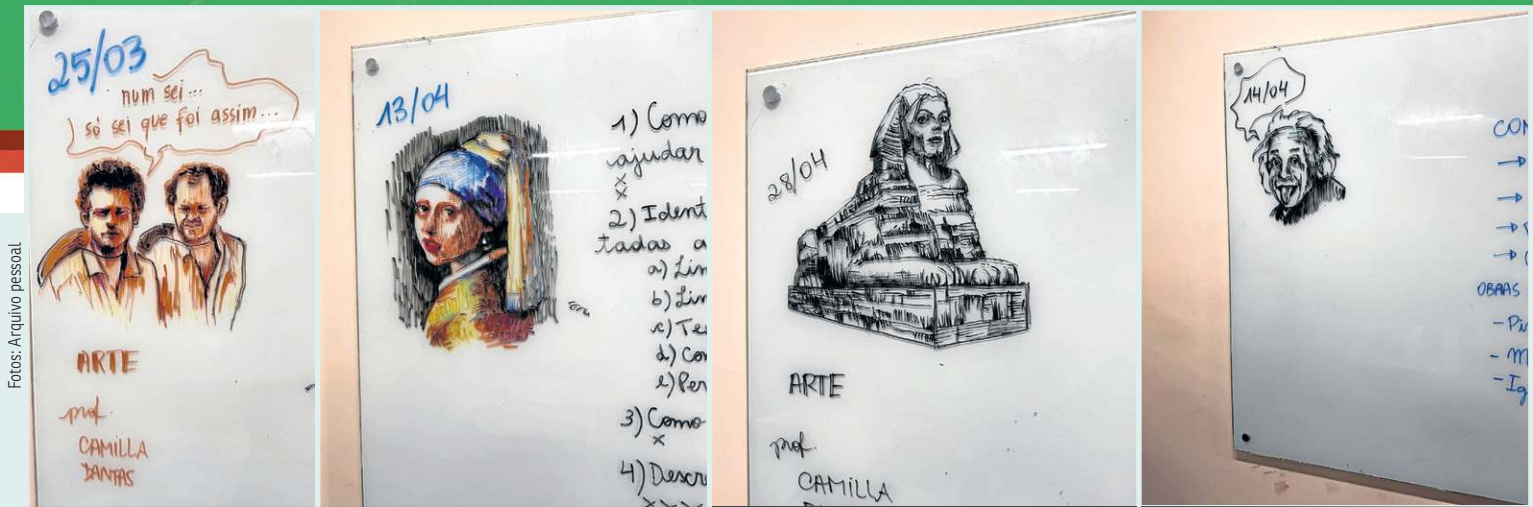 Fotos: Arquivo pessoal
25/03
num sei...
só sei que foi assim...
ARTE
prof.
CAMILLA
DANTAS
13/04
1) Como
ajudar
x
x
2) Ident
tadas a
a) Lin
b) Lin
c) Te
d) Con
e) Per
3) Como
x
4) Descr
28/04
ARTE
prof.
CAMILLA
14/04
CON
→
→
→
→
OBRAS
- Pi
- M
- Ig